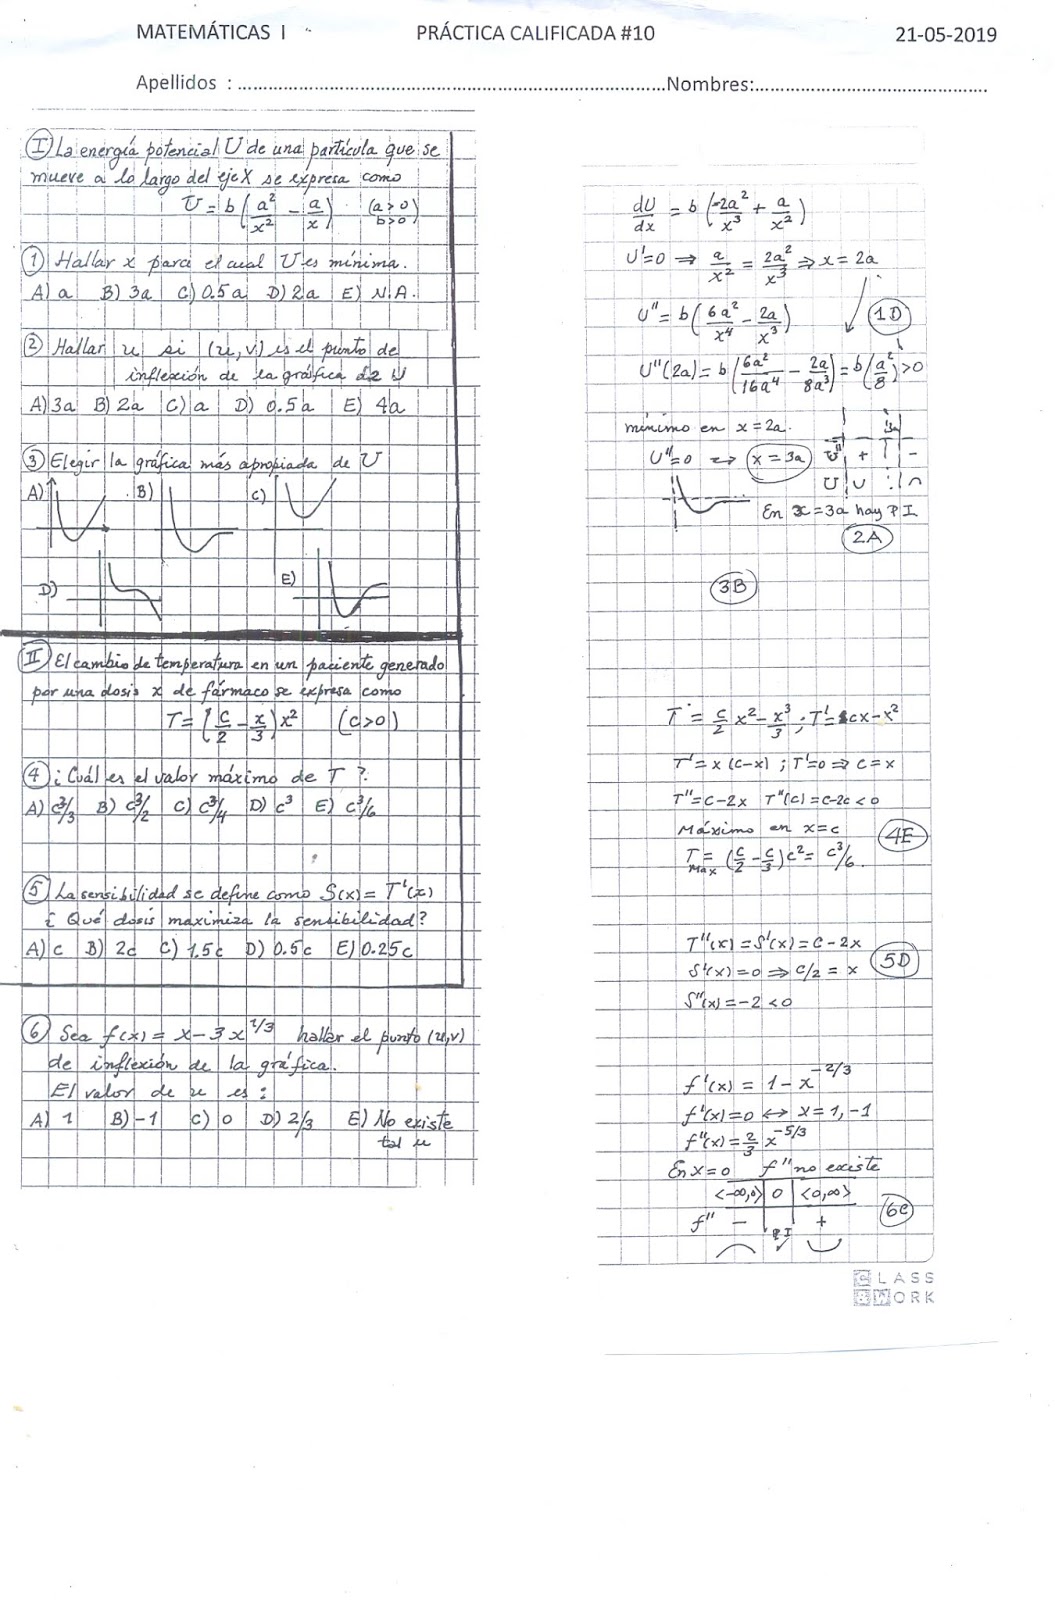 MATEMÁTICAS I PRÁCTICA CALIFICADA #10 21-05-2019
Apellidos : ................................................................................Nombres:............................................
I La energía potencial U de una partícula que se
mueve a lo largo del eje X se expresa como
U = b(a²/x² - a/x) (a>0 b>0)
1 Hallar x para el cual U es mínima.
A) a B) 3a C) 0.5a D) 2a E) N.A.
2 Hallar u si (u,v) es el punto de
inflexión de la gráfica de U
A) 3a B) 2a C) a D) 0.5a E) 4a
3 Elegir la gráfica más apropiada de U
A) B) C)
D) E)
II El cambio de temperatura en un paciente generado
por una dosis x de fármaco se expresa como
T = (c/2 - x/3)x² (c>0)
4 ¿Cuál es el valor máximo de T ?.
A) c³/3 B) c³/2 C) c³/4 D) c³ E) c³/6
5 La sensibilidad se define como S(x) = T'(x)
¿ Qué dosis maximiza la sensibilidad?
A) c B) 2c C) 1.5c D) 0.5c E) 0.25c
6 Sea f(x) = x - 3x^1/3 hallar el punto (u,v)
de inflexión de la gráfica.
El valor de u es :
A) 1 B) -1 C) 0 D) 2/3 E) No existe
tal u
dU/dx = b(-2a²/x³ + a/x²)
U'=0 ⇒ a/x² = 2a²/x³ ⇒ x = 2a
U'' = b(6a²/x⁴ - 2a/x³) 1D
U''(2a) = b(6a²/16a⁴ - 2a/8a³) = b(a²/8) > 0
mínimo en x = 2a. 3a
U''=0 ⇔ x = 3a U'' + -
U ∪ ∩
En x = 3a hay PI
2A
3B
T = c/2 x² - x³/3 ; T' = cx - x²
T' = x(c-x) ; T'=0 ⇒ c = x
T'' = c-2x T''(c) = c-2c < 0
Máximo en x=c 4E
T Max = (c/2 - c/3)c² = c³/6
T''(x) = S'(x) = c - 2x
S'(x) = 0 ⇒ c/2 = x 5D
S''(x) = -2 < 0
f'(x) = 1 - x^-2/3
f'(x) = 0 ↔ x = 1, -1
f''(x) = 2/3 x^-5/3
En x=0 f'' no existe
<-∞,0> 0 <0,∞>
f'' - PI + 6C
CLASS
WORK